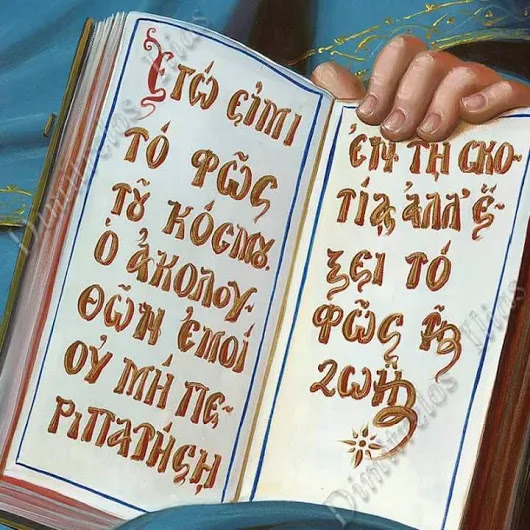 Ἐγώ εἰμι
τό φῶς
τοῦ κόσμου.
ὁ ἀκολου-
θῶν ἐμοί
οὐ μή πε-
ριπατήσῃ
ἐν τῇ σκο-
τίᾳ, ἀλλ' ἕ-
ξει τό
φῶς τῆς
ζωῆς
Dimitrelos Ilias